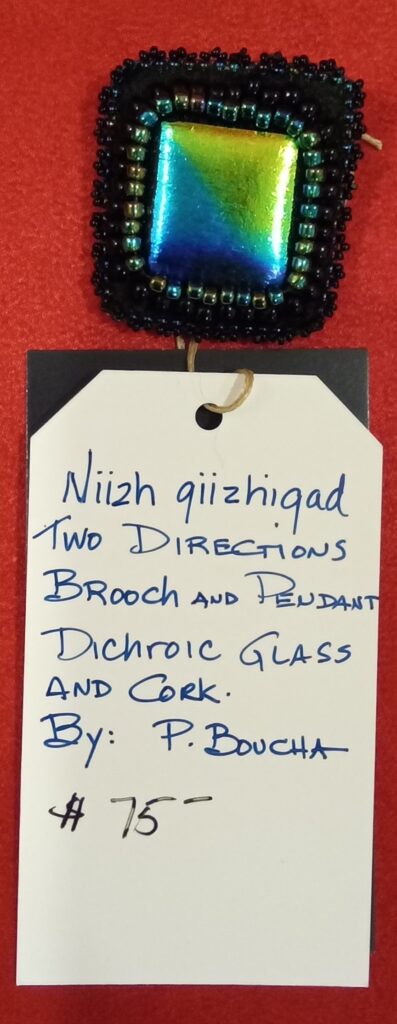 Niizh giizhigad
Two Directions
Brooch and Pendant
Dichroic Glass
and Cork.
By: P. Boucha
$ 75 -